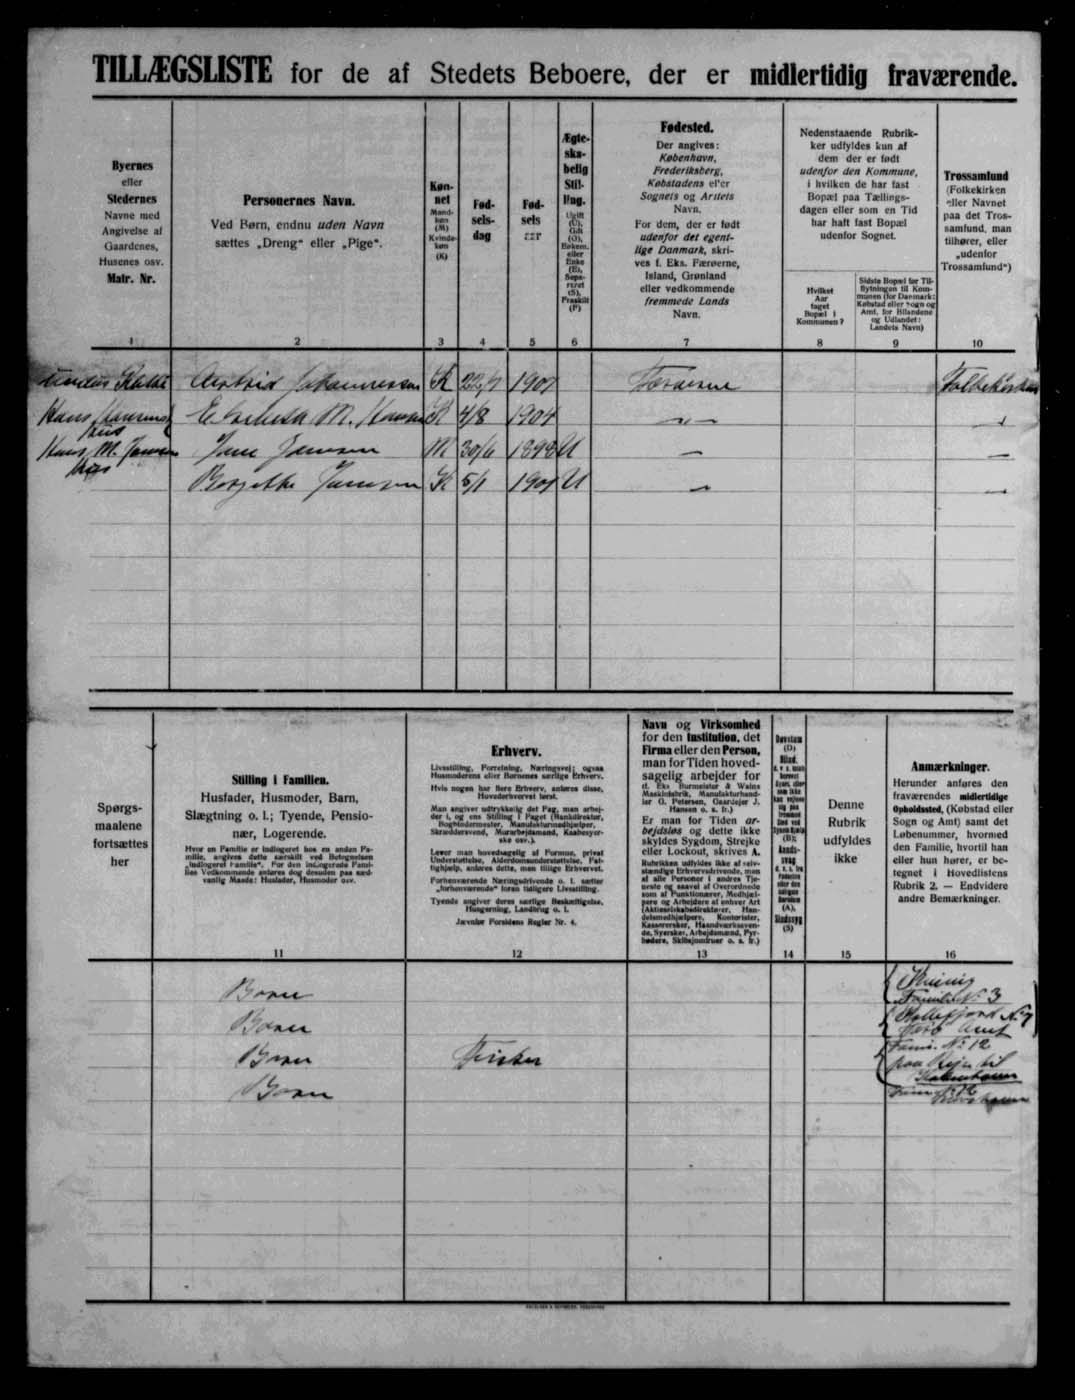 TILLÆGSLISTE for de af Stedets Beboere, der er midlertidig fraværende.
Byernes
eller
Stedernes
Navne med
Angivelse af
Gaardenes,
Husenes osv.
Matr. Nr.
1
Personernes Navn.
Ved Børn, endnu uden Navn
sættes „Dreng“ eller „Pige“.
2
Køn-
net
Mand-
køn
(M)
Kvinde-
køn
(K)
3
Fød-
sels-
dag
4
Fød-
sels
aar
5
Ægte-
ska-
belig
Stil-
ling.
Ugift
(U),
Gift
(G),
Enkem.
eller
Enke
(E),
Sepa-
reret
(S),
Fraskilt
(F)
6
Fødested.
Der angives:
København,
Frederiksberg,
Købstadens eller
Sognets og Amtets
Navn.
For dem, der er født
udenfor det egent-
lige Danmark, skri-
ves f. Eks. Færøerne,
Island, Grønland
eller vedkommende
fremmede Lands
Navn.
7
Nedenstaaende Rubrik-
ker udfyldes kun af
dem der er født
udenfor den Kommune,
i hvilken de har fast
Bopæl paa Tællings-
dagen eller som en Tid
har haft fast Bopæl
udenfor Sognet.
Hvilket
Aar
taget
Bopæl i
Kommunen?
8
Sidste Bopæl før Til-
flytningen til Kom-
munen (for Danmark:
Købstad eller Sogn og
Amt, for Bilandene
og Udlandet:
Landets Navn)
9
Trossamfund
(Folkekirken
eller Navnet
paa det Tros-
samfund, man
tilhører, eller
„udenfor
Trossamfund“)
10
Johannessen K 22/7 1907 Færøerne Folkekirken
M. K 4/8 1904 — „ —
Hans M. Jensen Jens Jensen M 30/6 1898 U —
hus
Jensen K 5/1 1901 U —
Spørgs-
maalene
fortsættes
her
Stilling i Familien.
Husfader, Husmoder, Barn,
Slægtning o. l.; Tyende, Pensio-
nær, Logerende.
Hvor en Familie er indlogeret hos en anden Fa-
milie, angives dette særskilt ved Betegnelsen
„indlogeret Familie“. For den indlogerede Fami-
lies Vedkommende anføres dog desuden paa sæd-
vanlig Maade: Husfader, Husmoder osv.
11
Erhverv.
Livsstilling, Forretning, Næringsvej; ogsaa
Husmoderens eller Børnenes særlige Erhverv.
Hvis nogen har flere Erhverv, anføres disse,
Hovederhvervet først.
Man angiver udtrykkelig det Fag, man arbej-
der i, og ens Stilling i Faget (Bankdirektør,
Bogbindermester, Manufakturmedhjælper,
Skræddersvend, Murarbejdsmand, Kaabesyer-
ske osv.).
Lever man hovedsagelig af Formue, privat
Understøttelse, Alderdomsunderstøttelse, Fat-
tighjælp, anføres dette, men tillige Erhvervet.
Forhenværende Næringsdrivende o. l. sætter
„forhenværende“ foran tidligere Livsstilling.
Tyende angiver deres særlige Beskæftigelse,
Husgerning, Landbrug o. l.
Jævnfør Forsidens Regler Nr. 4.
12
Navn og Virksomhed
for den Institution, det
Firma eller den Person,
man for Tiden hoved-
sagelig arbejder for
(f. Eks Burmeister & Wains
Maskinfabrik, Manufakturhand-
ler G. Petersen, Gaardejer J.
Hansen o. s. fr.)
Er man for Tiden ar-
bejdsløs og dette ikke
skyldes Sygdom, Strejke
eller Lockout, skrives A.
Rubrikken udfyldes ikke af selv-
stændige Erhvervsdrivende, men
af alle Personer i andres Tje-
neste og saavel af Overordnede
som af Funktionærer, Medhjæl-
pere og Arbejdere af enhver Art
(Aktieselskabsdirektører, Han-
delsmedhjælpere, Kontorister,
Kassererskер, Haandværkssven-
de, Syersker, Arbejdsmænd, Fyr-
bødere, Skibsjomfruer o. s. fr.)
13
Døvstum
(D)
Blind,
(B);
Aands-
svag
(A),
Sindssyg
(S)
14
Denne
Rubrik
udfyldes
ikke
15
Anmærkninger.
Herunder anføres den
fraværendes midlertidige
Opholdssted, (Købstad eller
Sogn og Amt) samt det
Løbenummer, hvormed
den Familie, hvortil han
eller hun hører, er be-
tegnet i Hovedlistens
Rubrik 2. — Endvidere
andre Bemærkninger.
16
Barn
Familie No 3
Barn Kollefjord No 7
Færø Amt
Barn Fisker Fam. No 12
paa Rejse til
København
Barn Fam. No 12
Thorshavn